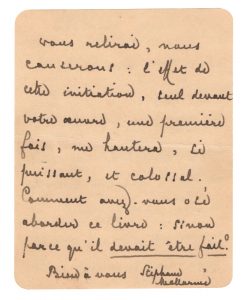 vous relirai, nous
causerons : l'effet de
cette initiation, seul devant
votre œuvre, une première
fois, me hantera, si
puissant, et colossal.
Comment avez-vous osé
aborder ce livre : sinon
parce qu'il devait être fait.
Bien à vous Stéphane
Mallarmé